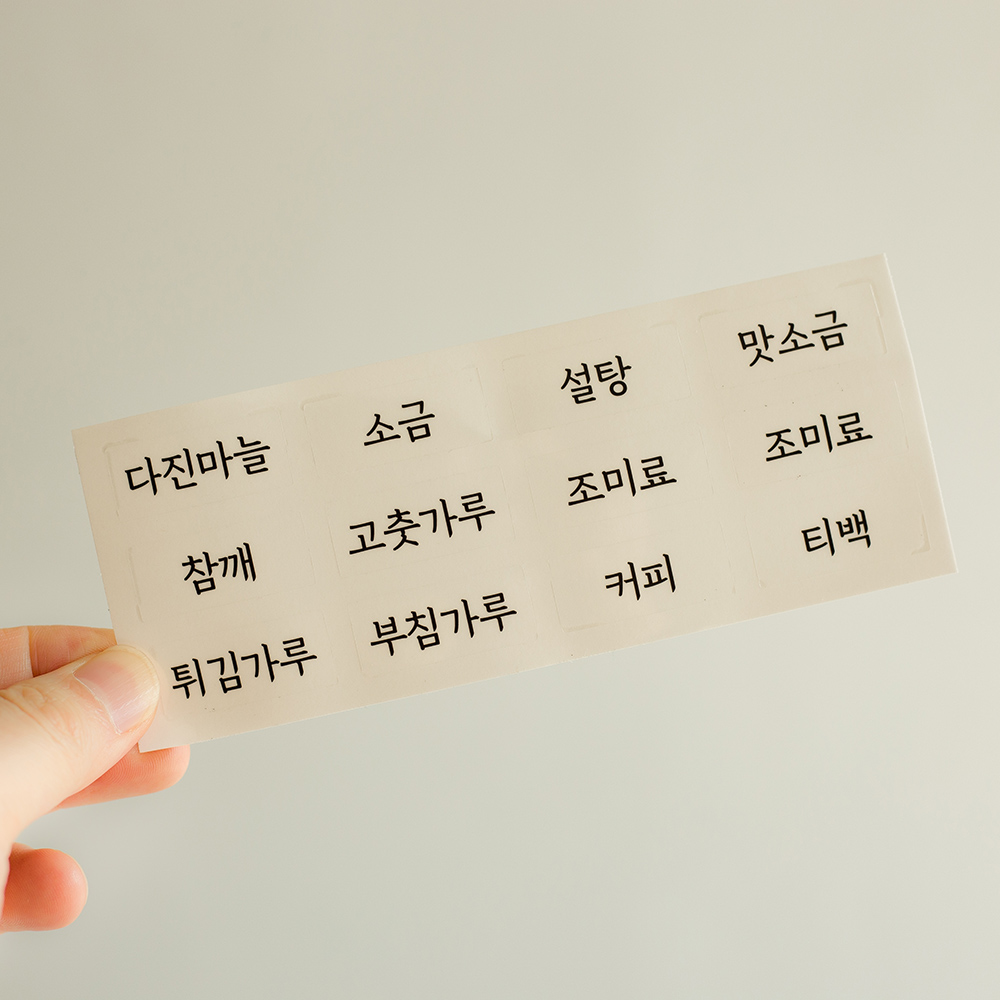 다진마늘 소금 설탕 맛소금
참깨 고춧가루 조미료 조미료
튀김가루 부침가루 커피 티백